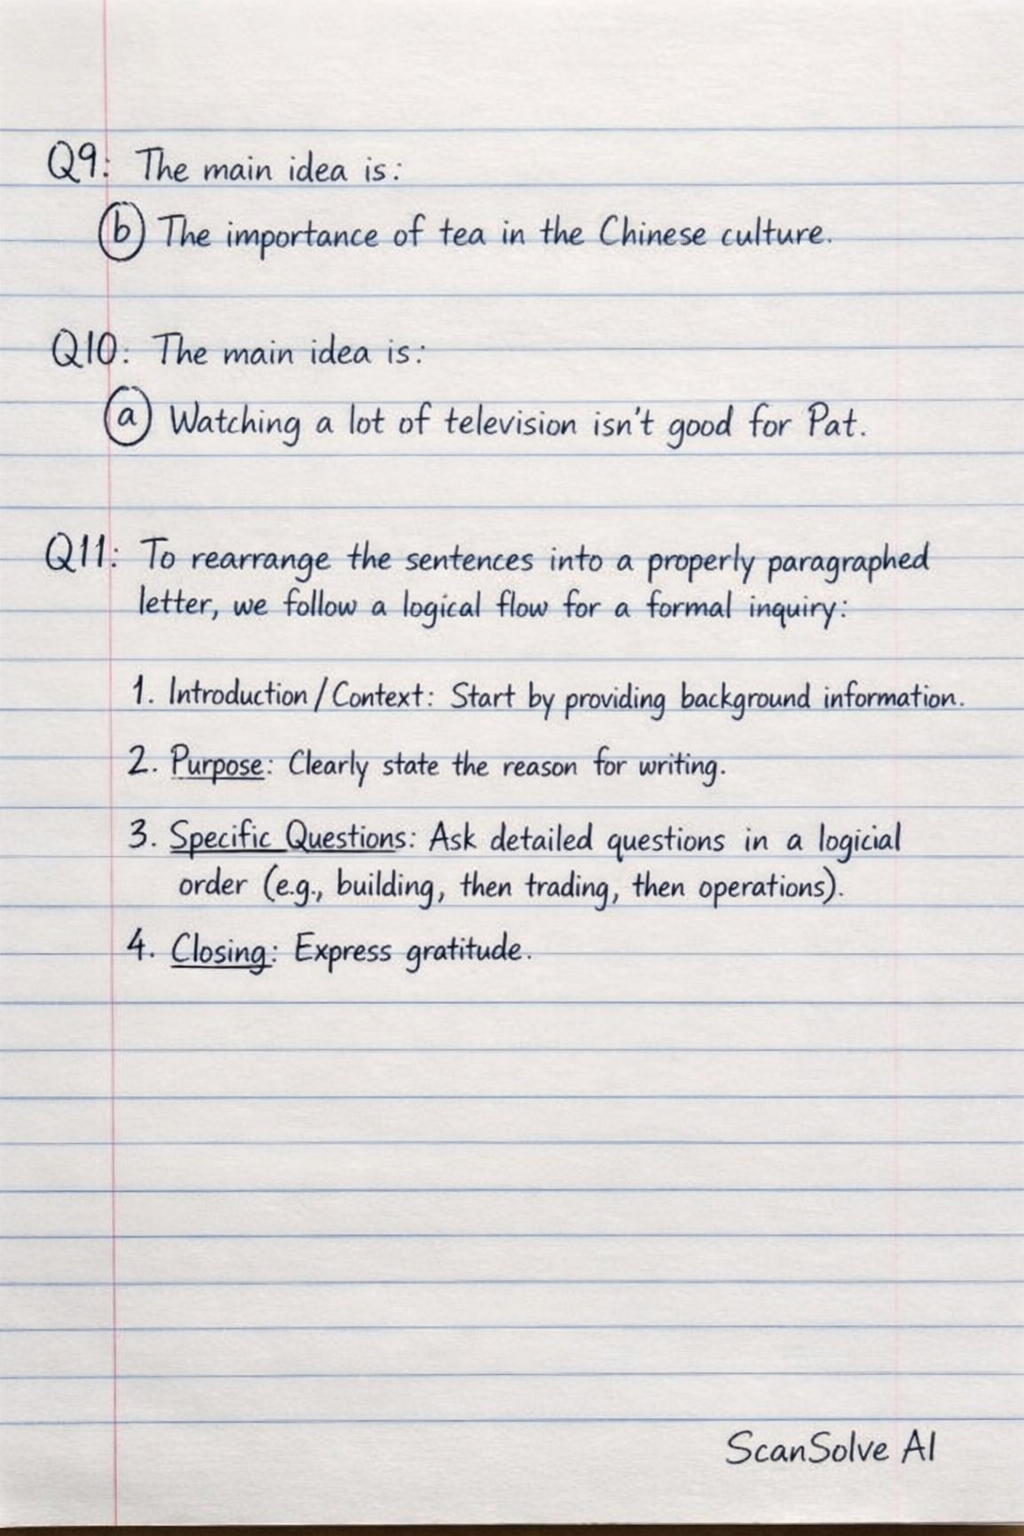 Q9: The main idea is:
b The importance of tea in the Chinese culture.
Q10: The main idea is:
a Watching a lot of television isn't good for Pat.
Q11: To rearrange the sentences into a properly paragraphed
letter, we follow a logical flow for a formal inquiry:
1. Introduction/Context: Start by providing background information.
2. Purpose: Clearly state the reason for writing.
3. Specific Questions: Ask detailed questions in a logicial
order (e.g., building, then trading, then operations).
4. Closing: Express gratitude.
ScanSolve AI